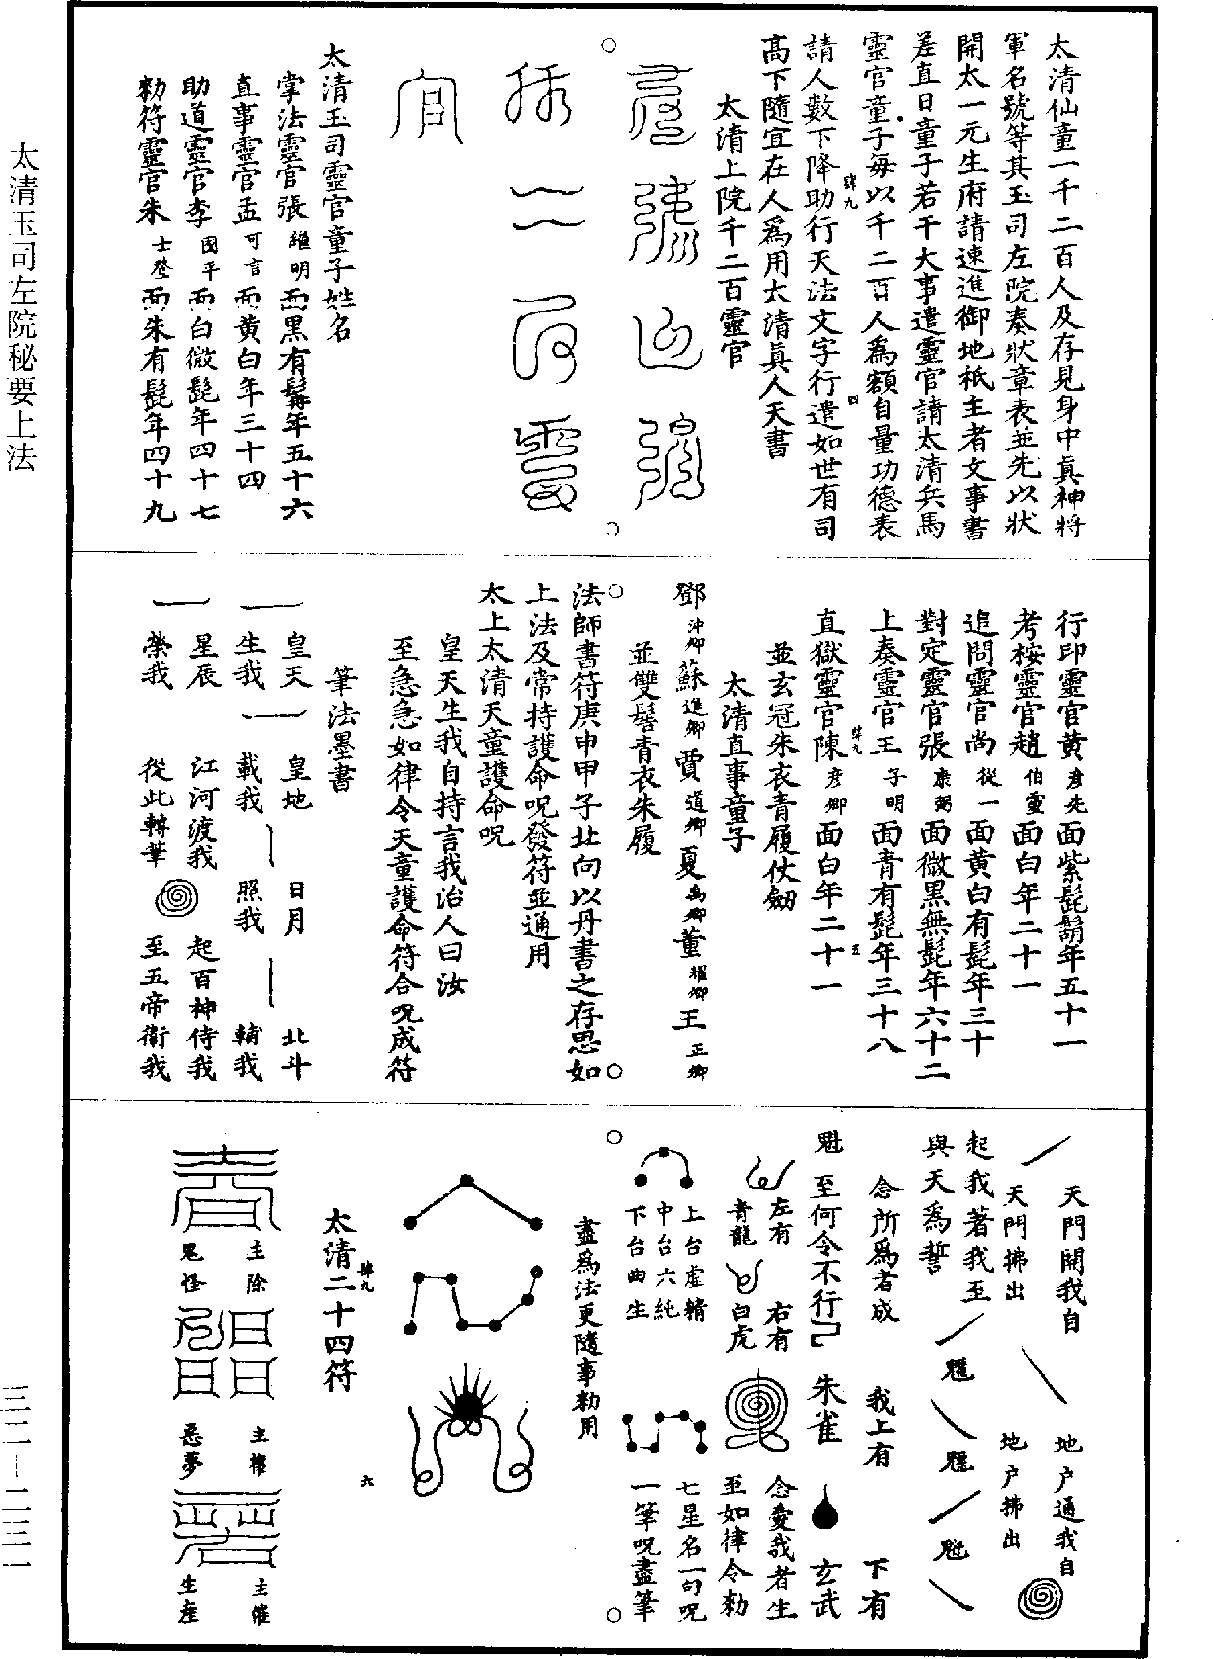 太清玉司左院秘要上法
三二—二三一
太清仙童一千二百人及存見身中真神將
軍名號等其玉司左院奏狀章表並先以狀
開太一元生府請速進御地祇主者文事書
差直日童子若干大事遣靈官請太清兵馬
靈官童子每以千二百人為額自量功德表
請人數下降助行天法文字行遣如世有司
高下隨宜在人為用太清真人天書
太清上院千二百靈官
太清玉司靈官童子姓名
掌法靈官張維明面黑有髯年五十六
直事靈官孟可言面黃白年三十四
助道靈官李國平面白微髭年四十七
勑符靈官朱士登面朱有髭年四十九
行印靈官黃彥先面紫髭鬍年五十一
考校靈官趙伯靈面白年二十一
追問靈官尚從一面黃白有髭年三十
對定靈官張康弼面微黑無髭年六十二
上奏靈官王子明面青有髭年三十八
直獄靈官陳彥卿面白年二十一
並玄冠朱衣青履仗劒
太清直事童子
鄧沖卿蘇進卿賈道卿夏禹卿董耀卿王正卿
並雙髻青衣朱履
法師書符庚申甲子北向以丹書之存思如
上法及常持護命呪發符並通用
太上太清天童護命呪
皇天生我自持言我治人曰汝
至急急如律令天童護命符合呪成符
筆法墨書
皇天生我
皇地載我
日月照我
北斗輔我
星辰榮我
江河渡我從此轉筆
起百神侍我至五帝衛我
天門開我自
地户通我自
天門拂出
地户拂出
起我著我至
與天為誓
念所為者成
我上有
下有
魁
至何令不行
朱雀
玄武
左有青龍
右有白虎
念愛我者生
至如律令勑
上台虛精
中台六純
下台曲生
七星名一句呪
一筆呪盡筆
盡為法更隨事勑用
太清二十四符
主除鬼怪
主攘惡夢
主催生產